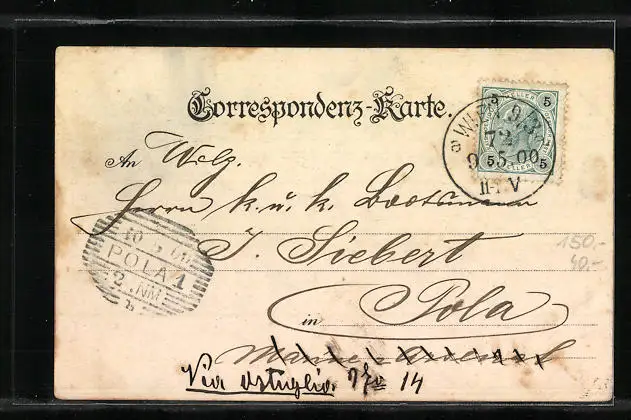 Correspondenz-Karte.
WIEN
72
9 5 00
II-1 V
5 5
5 5
An Welg.
Herrn k. u. k. Bootsmann
J. Siebert
10 5 00
POLA 1
2. NM
b
in Pola
150.-
40.-
Via No 14